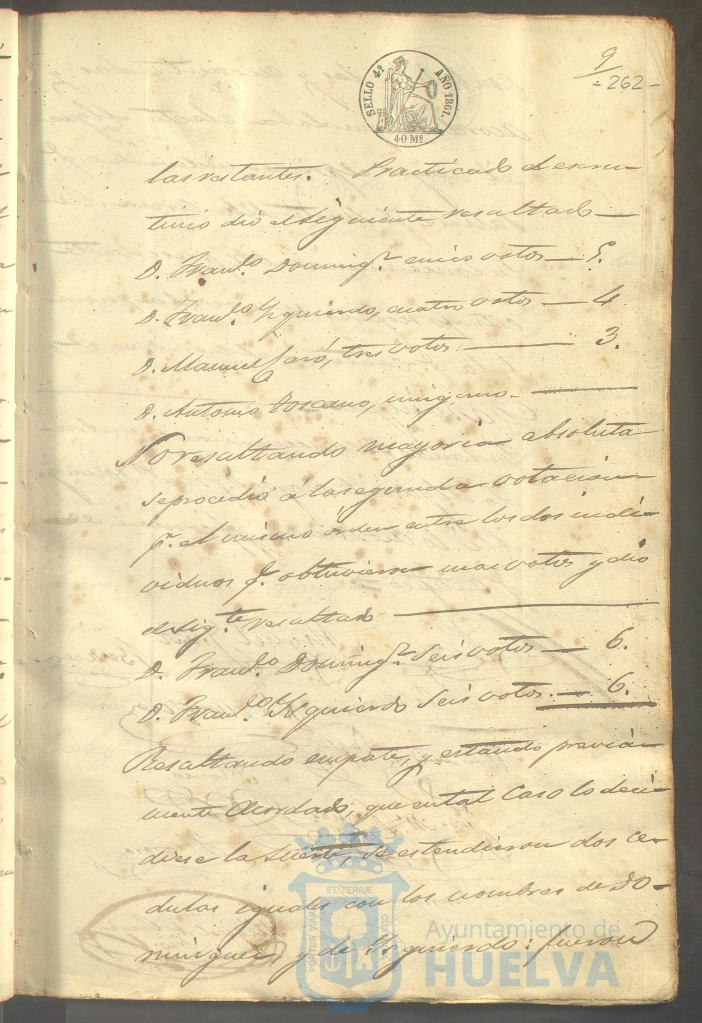 9
- 262 -
SELLO 4º AÑO 1861.
40 Ms
las restantes. Practicado el escru-
tinio dio el siguiente resultado —
D. Franco. Domingz. cinco votos — 5.
D. Franco. Yzquierdo, cuatro votos — 4
D. Manuel Jaró, tres votos. — 3.
D. Antonio Toscano, ninguno. —
No resultando mayoria absoluta
se procedió á la segunda votacion
pr. el mismo orden entre los dos indi-
viduos q. obtuvieron mas votos y dio
el sigte. resultado —
D. Franco. Domingz. seis votos — 6.
D. Franco. Yzquierdo seis votos. — 6.
Resultando empate, y estando previa-
mente acordado, que en tal caso lo deci-
diese la suerte, se estendieron dos ce-
dulas iguales con los nombres de Do-
minguez y de Yzquierdo: fueron
ET TERRÆ
PORTUS MARIS
CUSTO
Ayuntamiento de
HUELVA